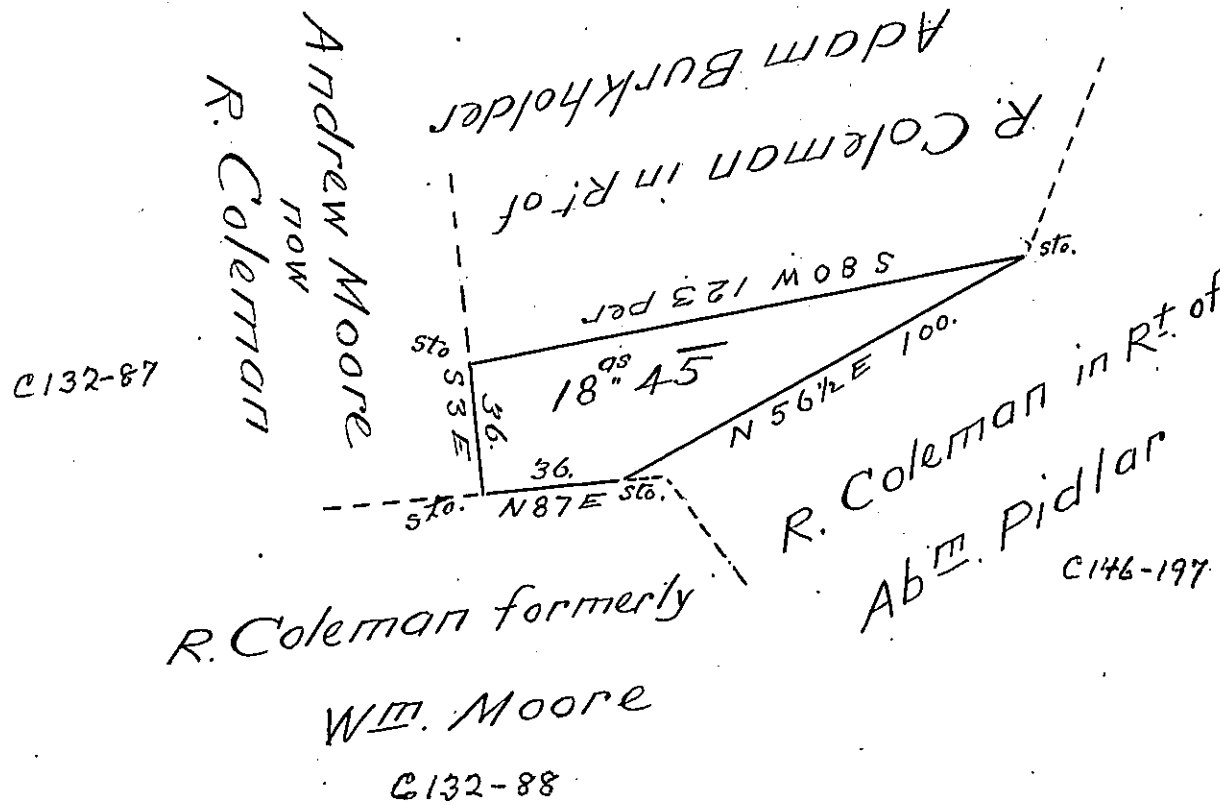 Andrew Moore
now
R. Coleman
C132-87
R. Coleman in Rt. of
Adam Burkholder
S 80 W 123 per
sto.
sto
18 as " 45
S 3 E
36.
N 56½ E 100.
36.
N 87 E
sto.
sto.
R. Coleman in Rt. of
Abm. Pidlar
C146-197
R. Coleman formerly
Wm. Moore
C132-88